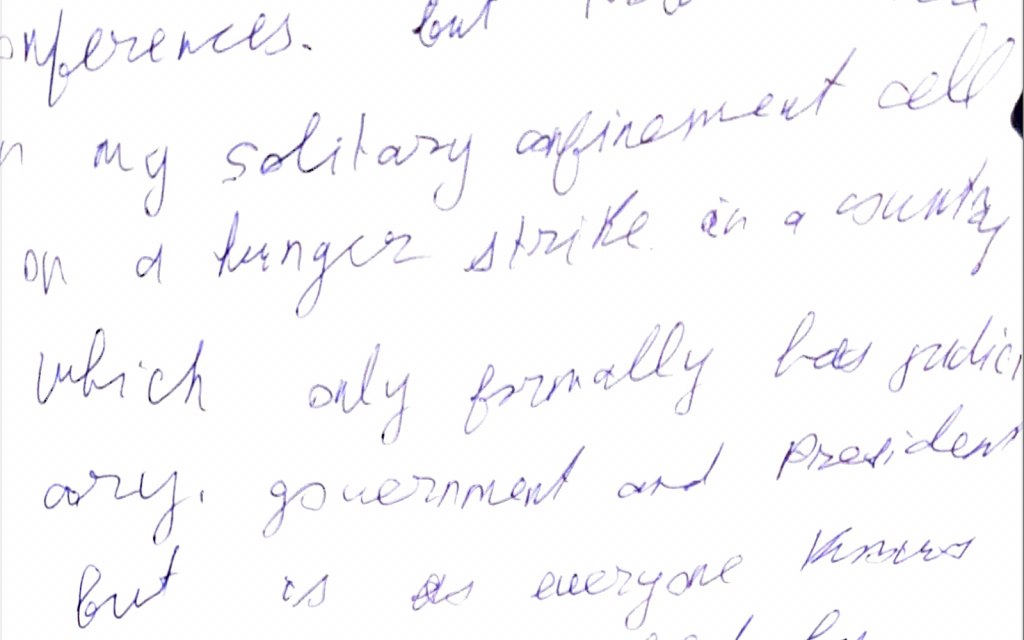 onferences. but
n my solitary confinement cell
on a hunger strike in a country
which only formally has judici
ary, government and president
but is as everyone knows